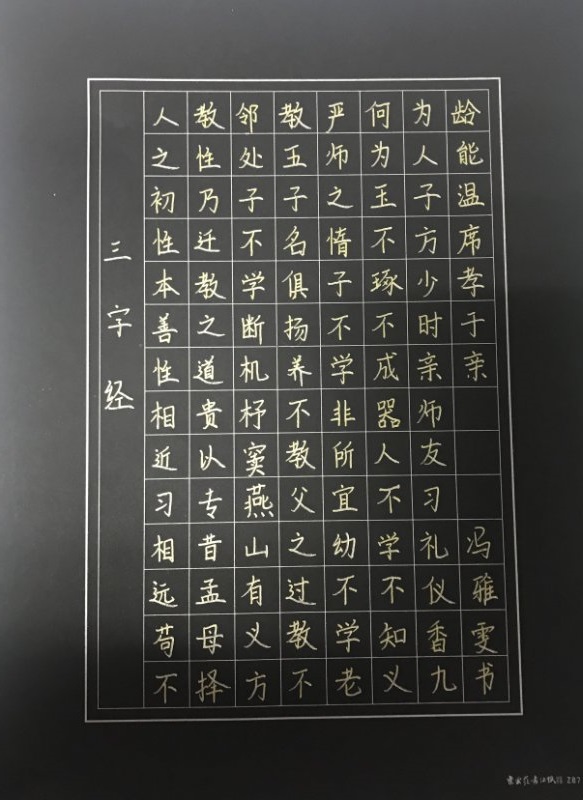 三字经
人之初性本善性相近习相远苟不
教性乃迁教之道贵以专昔孟母择
邻处子不学断机杼窦燕山有义方
教五子名俱扬养不教父之过教不
严师之惰子不学非所宜幼不学老
何为玉不琢不成器人不学不知义
为人子方少时亲师友习礼仪香九
龄能温席孝于亲 冯雅雯书
287